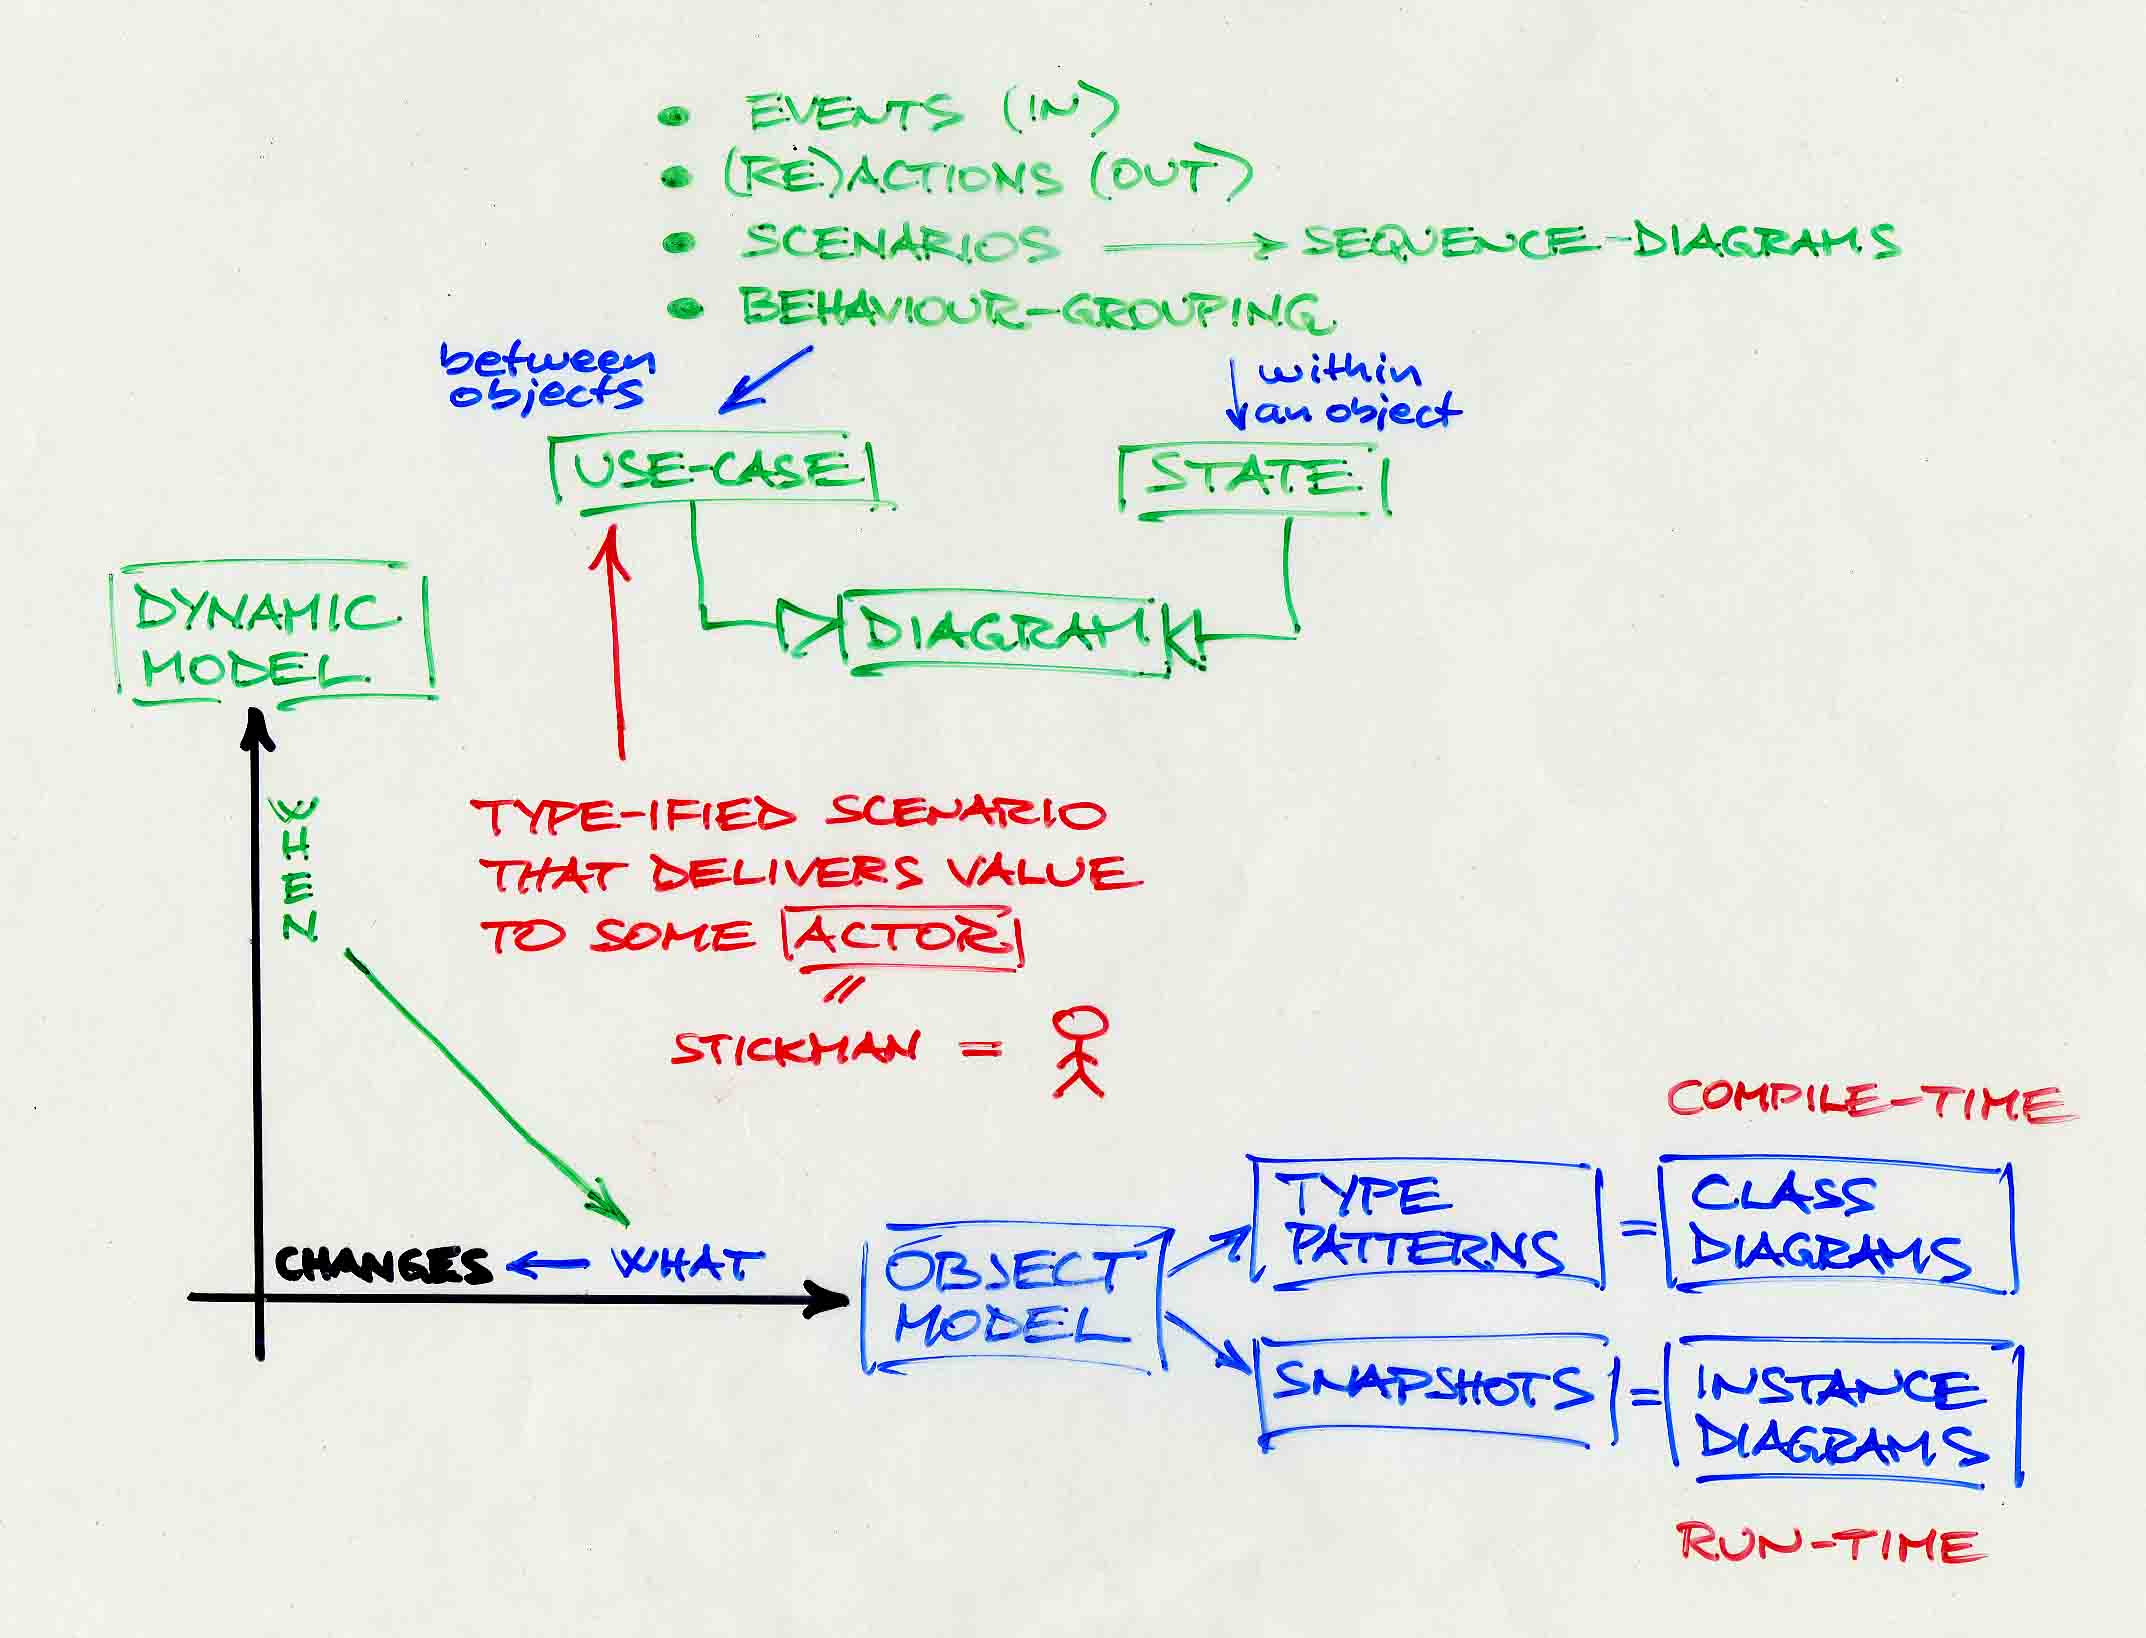 • EVENTS (IN)
• (RE)ACTIONS (OUT)
• SCENARIOS → SEQUENCE-DIAGRAMS
• BEHAVIOUR-GROUPING
between
objects
within
an object
USE-CASE
STATE
DIAGRAM
DYNAMIC
MODEL
WHEN
TYPE-IFIED SCENARIO
THAT DELIVERS VALUE
TO SOME ACTOR
=
STICKMAN =
CHANGES ← WHAT
OBJECT
MODEL
COMPILE-TIME
TYPE
PATTERNS
=
CLASS
DIAGRAMS
SNAPSHOTS
=
INSTANCE
DIAGRAMS
RUN-TIME